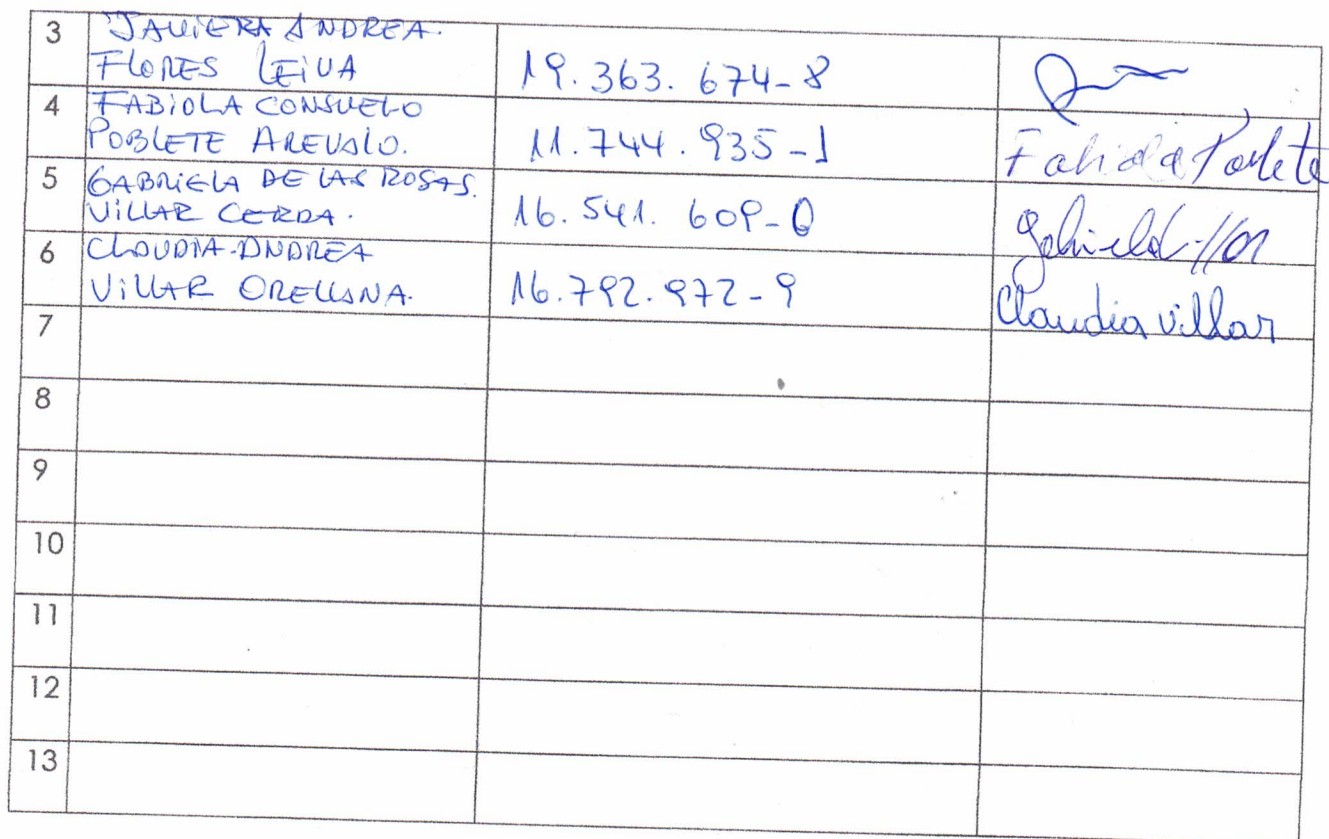 3 JAVIERA ANDREA.
FLORES LEIVA 19.363.674-8
4 FABIOLA CONSUELO
POBLETE AREVALO. 11.744.935-1 Fabiola Poblete
5 GABRIELA DE LAS ROSAS.
VILLAR CERDA. 16.541.609-0
6 CLAUDIA ANDREA
VILLAR ORELLANA. 16.792.972-9 Claudia Villar
7
8
9
10
11
12
13